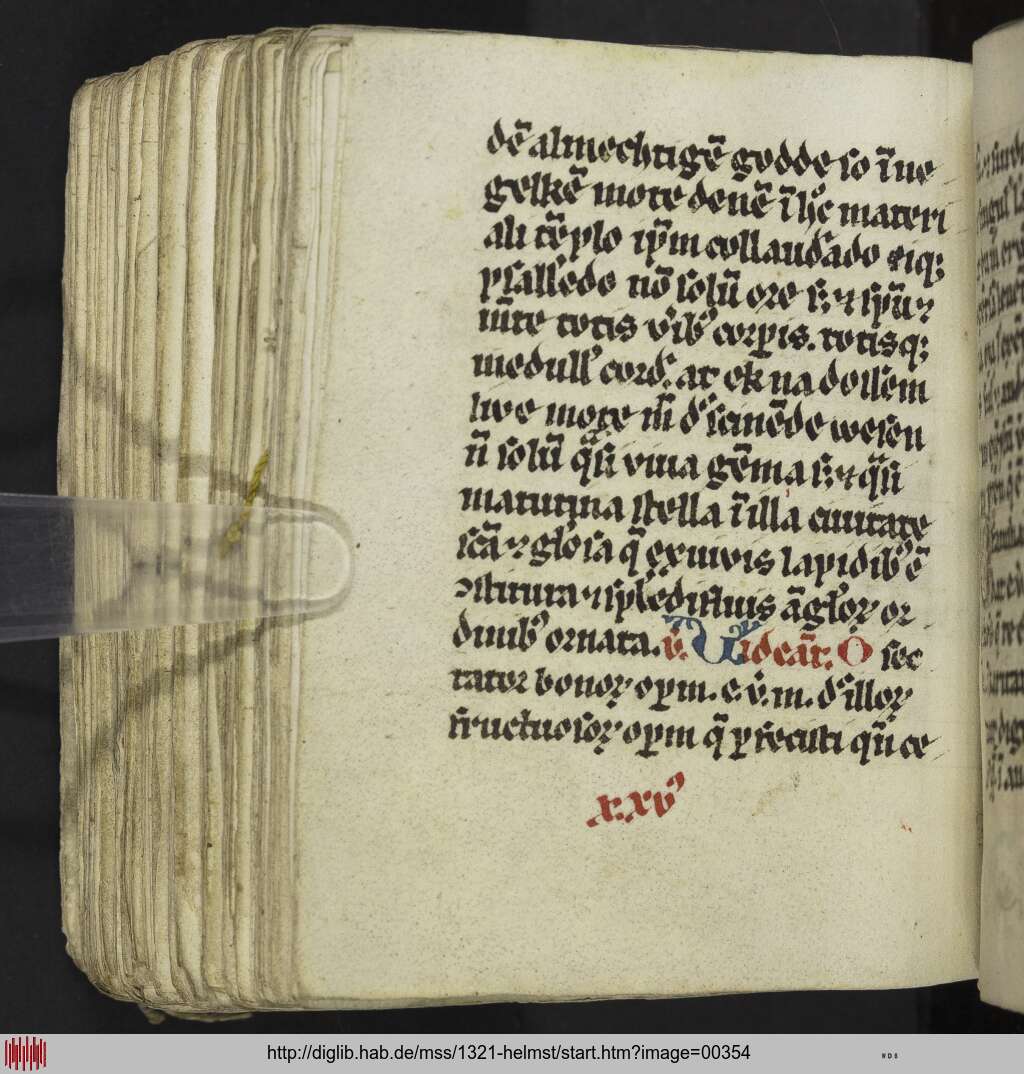 dē almechtigē godde so īne
gelkē mote denē ī h̄c materi
ali tēplo ip̄m collaudādo eiq;
psallēdo nō solū ore s; ⁊ sp̄u ⁊
mēte totis v̾ib9 corꝑis. totisq;
medull9 cord̾. ac ek na dossem
live mote m̄ d̾ scinēde wesen
n̄ solū q̄si viua gēma s; ⁊ q̄si
matutina stella ī illa ciuitate
scā ⁊ gl̾osa q̄ ex viuis lapidib9 ē
ꝯstituta ⁊ splēdiſſiīs āgl̾oꝝ or
dinib9 ornata. v̄. Videāt. O sec
tator bonoꝝ oꝑm. e. v̄. m. d̾ illoꝝ
fructuosoꝝ oꝑm q̄ ꝑsecuti qn̄ ce
x.xv9
http://diglib.hab.de/mss/1321-helmst/start.htm?image=00354